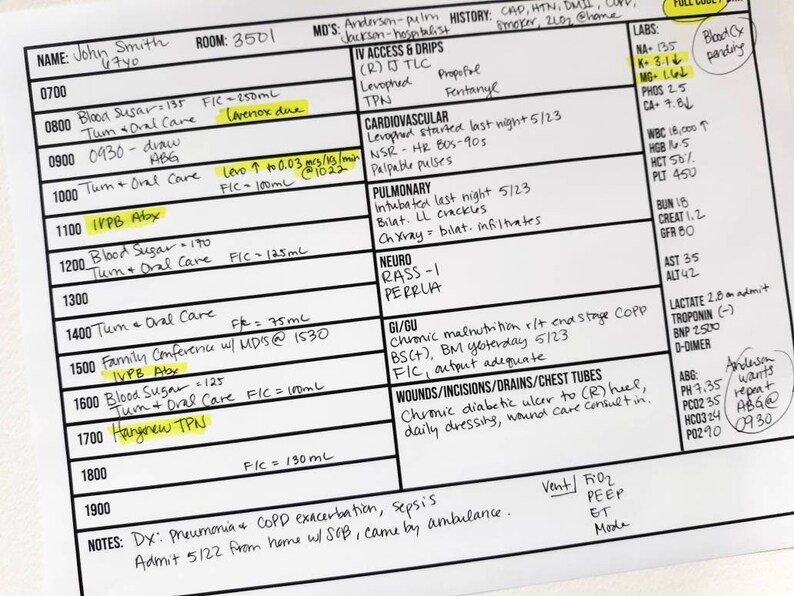 NAME: John Smith
67yo
ROOM: 3501
MD'S: Anderson-pulm
Jackson-hospitalist
HISTORY: CAD, HTN, DMII, COPD,
smoker, 2LO2 @home
FULL CODE
0700
0800 Blood Sugar = 135 F/C = 250mL
Turn + Oral Care Lovenox due
0900 0930 - draw
ABG
1000 Turn + Oral Care Levo ↑ to 0.03 mcg/kg/min
@1022
F/C = 100mL
1100 IVPB Abx
1200 Blood Sugar = 170
Turn + Oral Care F/C = 125mL
1300
1400 Turn + Oral Care
F/C = 75mL
1500 Family Conference w/ MD's @ 1530
IVPB Abx
1600 Blood Sugar = 125
Turn + Oral Care F/C = 100mL
1700 Hang new TPN
1800 F/C = 130mL
1900
IV ACCESS & DRIPS
(R) IJ TLC
Levophed Propofol
TPN Fentanyl
CARDIOVASCULAR
Levophed started last night 5/23
NSR - HR 80s-90s
Palpable pulses
PULMONARY
Intubated last night 5/23
Bilat. LL crackles
Ch Xray = bilat. infiltrates
NEURO
RASS -1
PERRLA
GI/GU
Chronic malnutrition r/t end stage COPD
BS(+), BM yesterday 5/23
F/C, output adequate
WOUNDS/INCISIONS/DRAINS/CHEST TUBES
Chronic diabetic ulcer to (R) heel,
daily dressing, wound care consult in.
LABS:
NA+ 135
K+ 3.1↓
MG+ 1.6↓
PHOS 2.5
CA+ 7.8↓
Blood Cx
pending
WBC 18,000 ↑
HGB 16.5
HCT 50%
PLT 450
BUN 18
CREAT 1.2
GFR 80
AST 35
ALT 42
LACTATE 2.8 on admit
TROPONIN (-)
BNP 2500
D-DIMER
ABG:
PH 7.35
PCO2 35
HCO3 24
PO2 90
Anderson
wants
repeat
ABG @
0930
NOTES: Dx: Pneumonia + COPD exacerbation, sepsis
Admit 5/22 from home w/ SOB, came by ambulance.
Vent FiO2
PEEP
ET
Mode